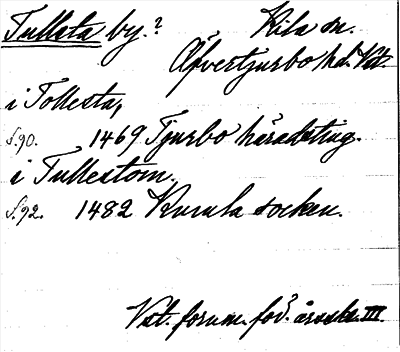 Tullsta by.? Kila sn.
Äfvertjurbo hd. Vst.
i Tollesta,
S.90. 1469 Tjurbo häradsting.
i Tullestom.
S.92. 1482 Kumla socken.
Vst. fornm. för. årsskr. III.